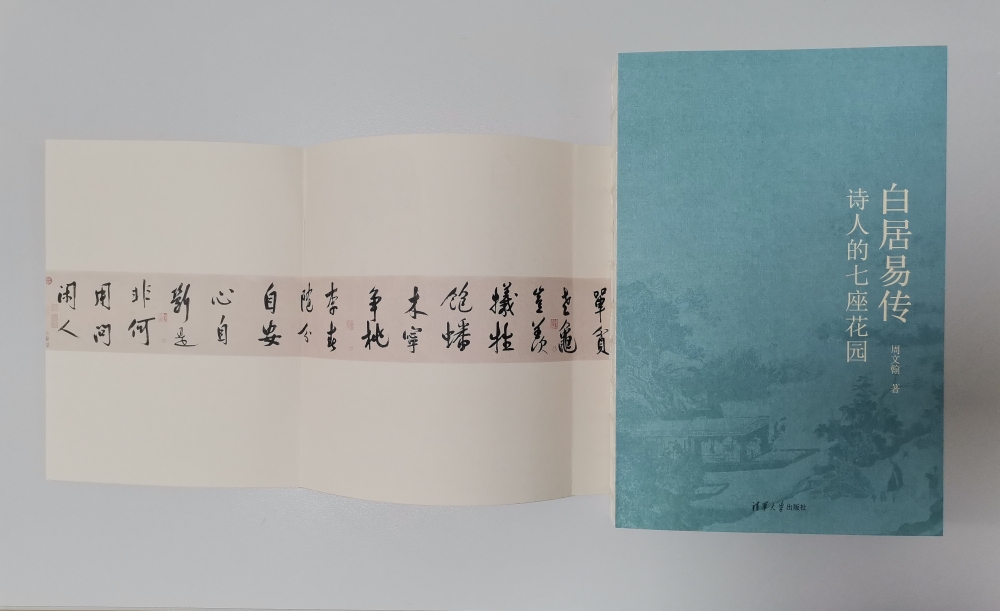 白居易传
诗人的七座花园
周文翰 著
清华大学出版社
單貧
老龜
豈羡
犧牲
飽蟠
木寧
争桃
李春
随分
自安
心自
斷是
非何
用問
闲人